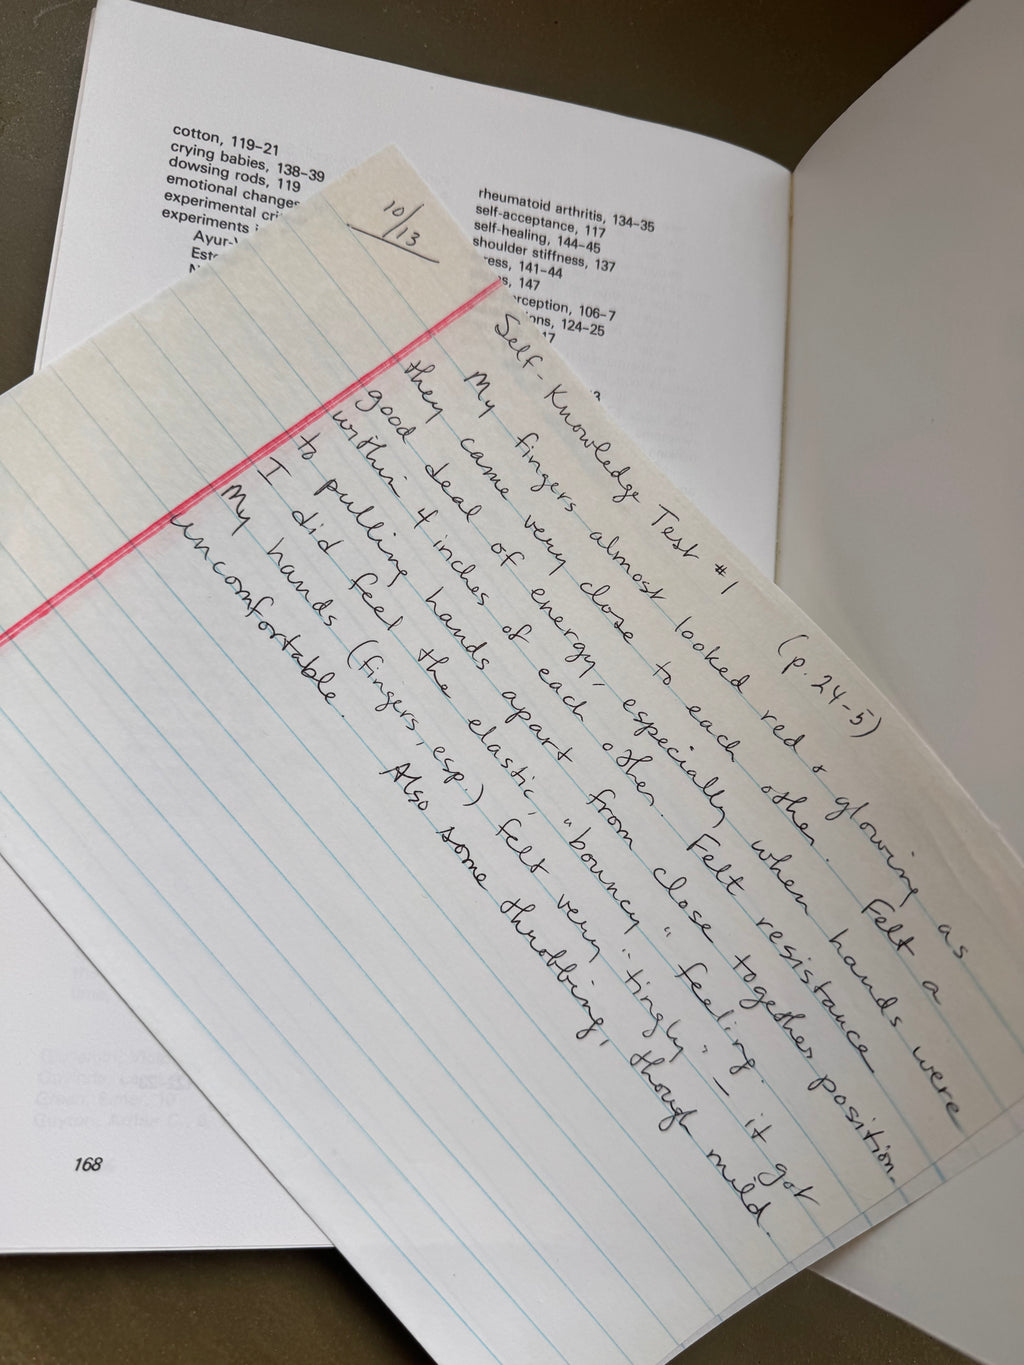 cotton, 119–21
crying babies, 138–39
dowsing rods, 119
emotional changes
experimental
experiments
rheumatoid arthritis, 134–35
self-acceptance, 117
self-healing, 144–45
shoulder stiffness, 137
141–44
147
106–7
124–25
10/13
Self-Knowledge Test #1 (p. 24-5)
My fingers almost looked red & glowing as
they came very close to each other. Felt a
good deal of energy, especially when hands were
within 4 inches of each other. Felt resistance
to pulling hands apart from close together position.
I did feel the elastic, "bouncy" feeling.
My hands (fingers, esp.) felt very "tingly" – it got
uncomfortable. Also some throbbing, though mild.
168